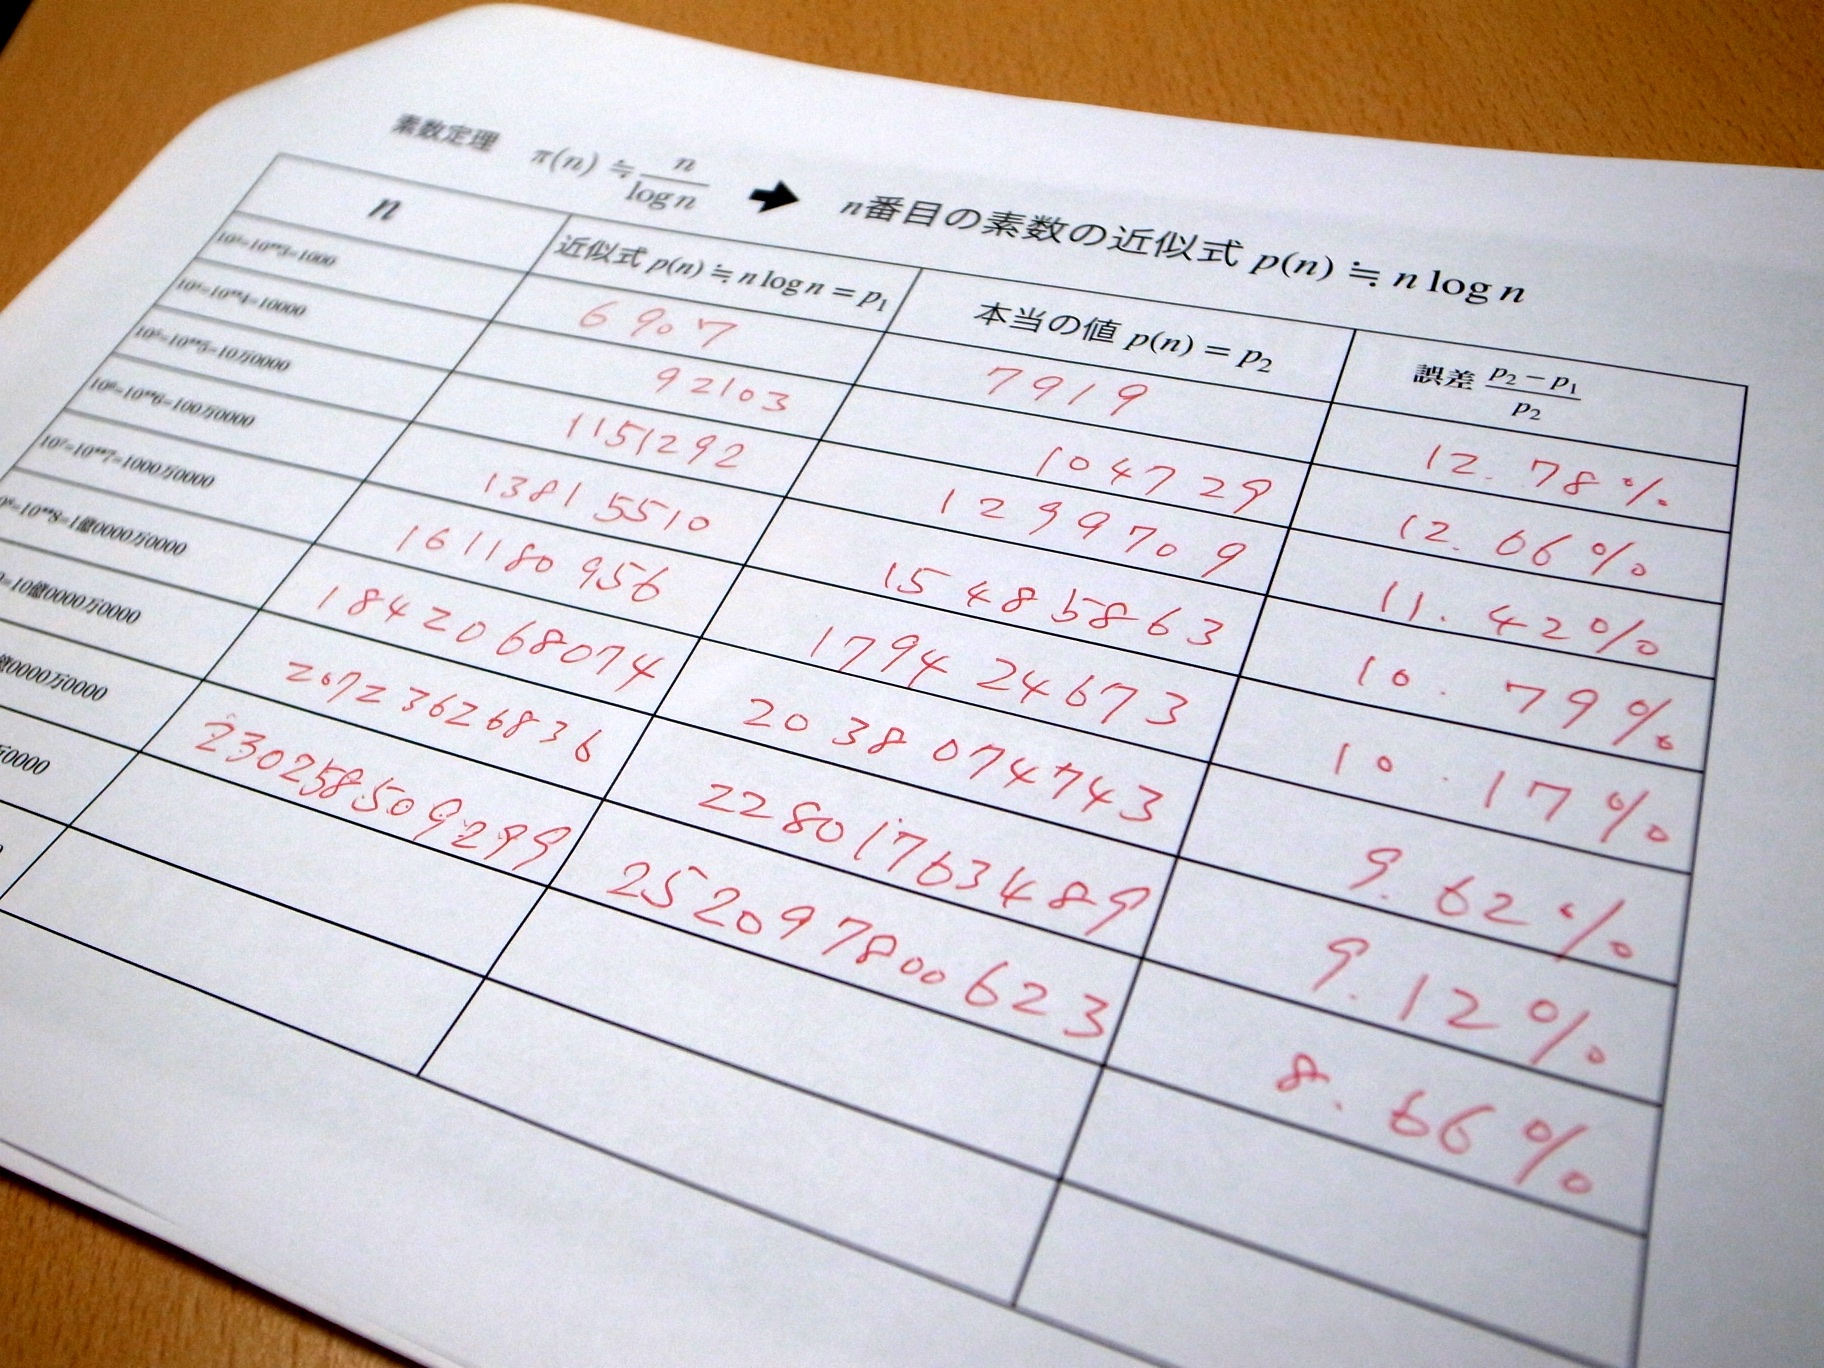 素数定理 π(n) ≒ n/log n ➡ n番目の素数の近似式 p(n) ≒ n log n
n 近似式 p(n) ≒ n log n = p₁ 本当の値 p(n) = p₂ 誤差 (p₂ − p₁)/p₂
10³=10**3=1000 6907 7919 12.78%
10⁴=10**4=10000 92103 104729 12.06%
10⁵=10**5=10万0000 1151292 1299709 11.42%
10⁶=10**6=100万0000 13815510 15485863 10.79%
10⁷=10**7=1000万0000 161180956 179424673 10.17%
10⁸=10**8=1億0000万0000 1842068074 2038074743 9.62%
=10億0000万0000 20723626836 22801763489 9.12%
億0000万0000 230258509299 252097800623 8.66%
万0000